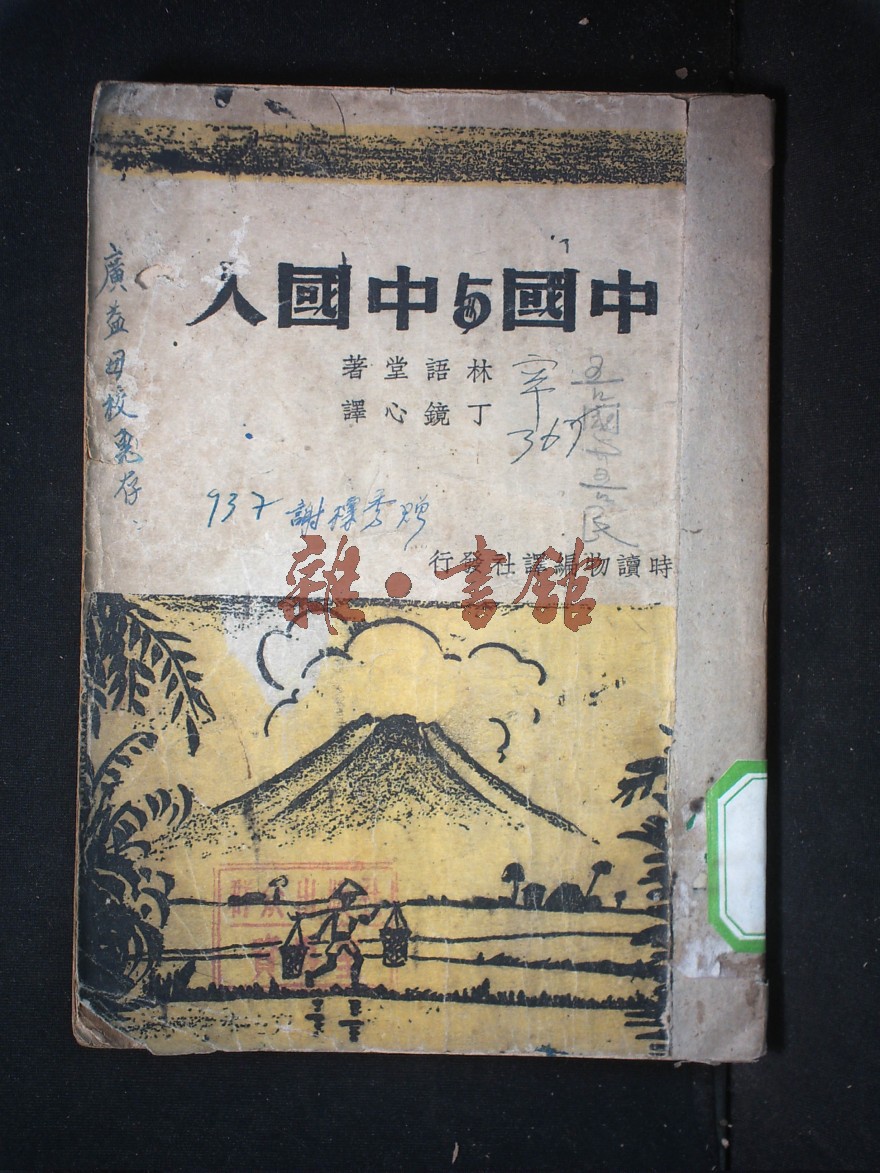 中國与中國人
林語堂著
丁鏡心譯
吾國与吾民
367
廣益母校惠存
937 謝秀贈
時讀物編譯社發行
雜·書館